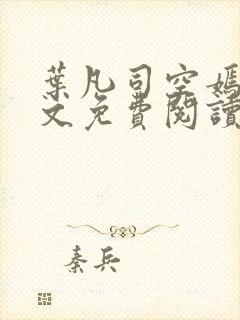 葉凡司空嫣
文免費閱讀
秦兵